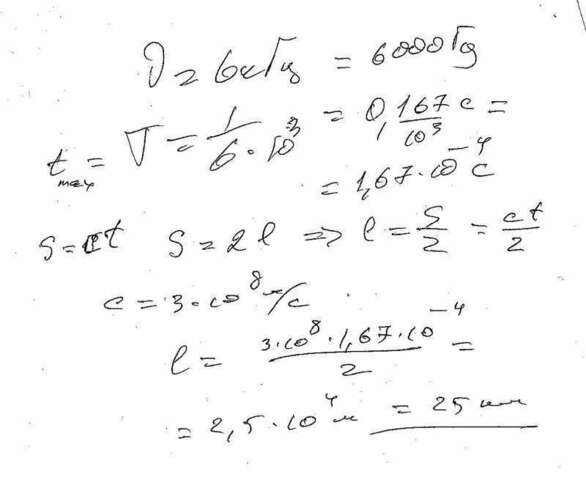 ν = 6 кГц = 6000 Гц
t max = T = 1 / 6·10³ = 0,167 / 10³ с =
= 1,67·10⁻⁴ с
S = ct S = 2l ⇒ l = S/2 = ct/2
c = 3·10⁸ м/с
l = 3·10⁸·1,67·10⁻⁴ / 2 =
= 2,5·10⁴ м = 25 км